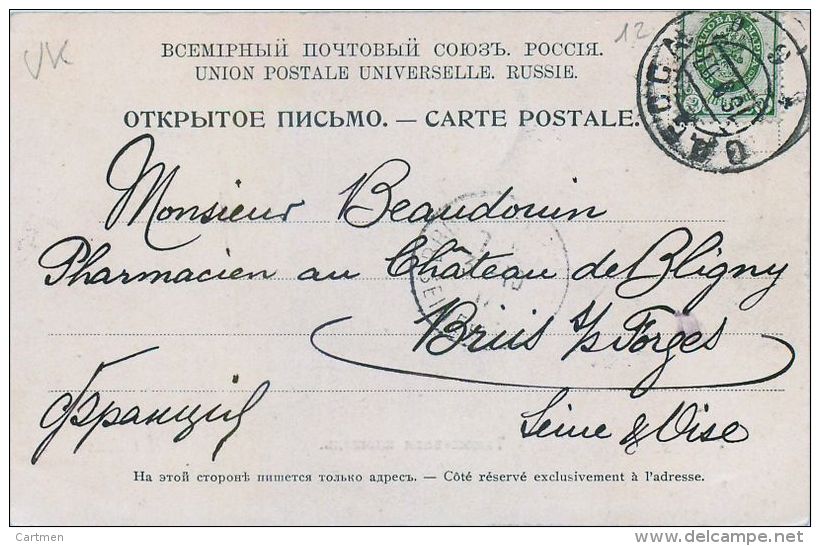 VK
12
ВСЕМІРНЫЙ ПОЧТОВЫЙ СОЮЗЪ. РОССІЯ.
UNION POSTALE UNIVERSELLE. RUSSIE.
ОТКРЫТОЕ ПИСЬМО. — CARTE POSTALE.
ОДЕССА
Monsieur Beaudouin
Pharmacien au Château de Bligny
Briis s/s Forges
Франция
Seine & Oise
На этой сторонѣ пишется только адресъ. — Côté réservé exclusivement à l'adresse.
Cartmen
delcampe.net